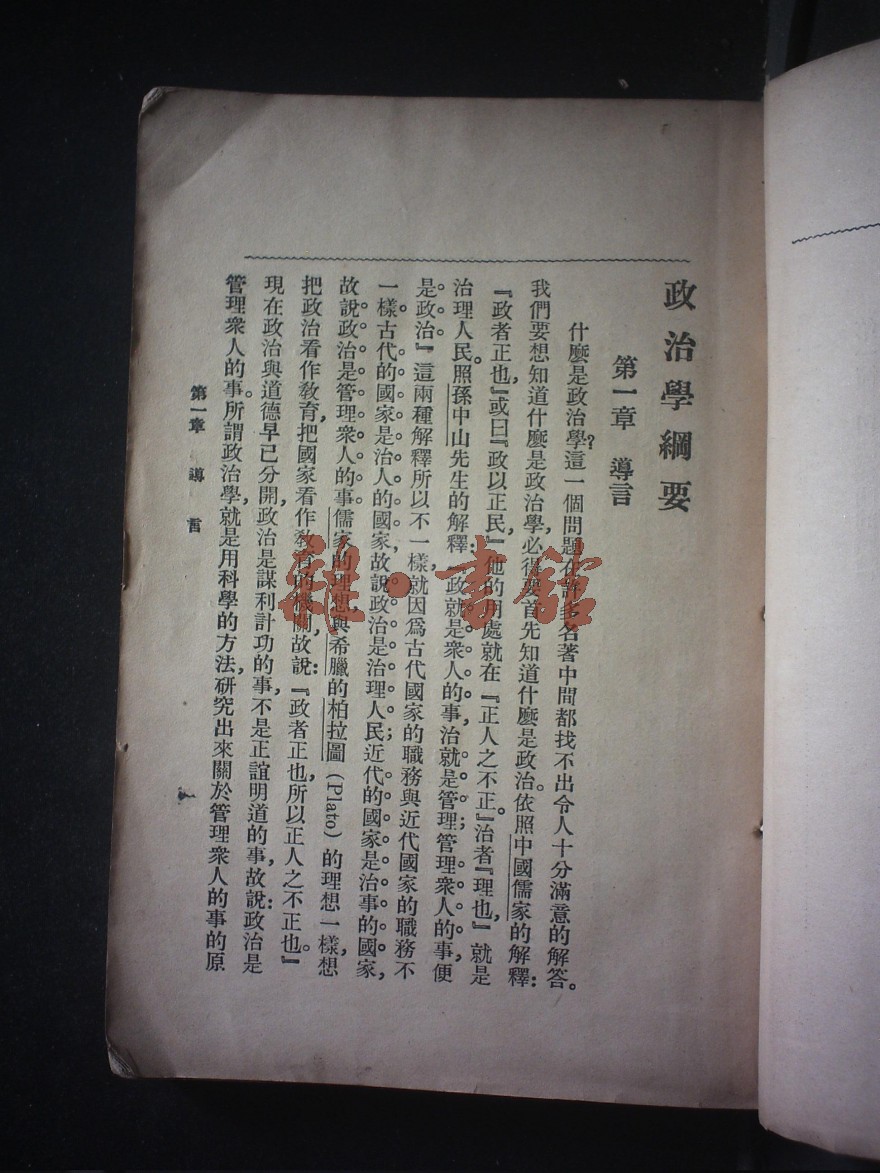 政治學綱要
第一章 導言
什麼是政治學？這一個問題在許多名著中間都找不出令人十分滿意的解答。
我們要想知道什麼是政治學，必得要首先知道什麼是政治。依照中國儒家的解釋：
『政者正也，』或曰『政以正民，』他的用處就在『正人之不正。』治者『理也，』就是
治理人民。照孫中山先生的解釋：『政就是衆人的事，治就是管理；管理衆人的事，便
是政治。』這兩種解釋所以不一樣，就因爲古代國家的職務與近代國家的職務不
一樣。古代的國家是治人的國家，故說政治是治理人民；近代的國家是治事的國家，
故說政治是管理衆人的事。儒家的理想，與希臘的柏拉圖（Plato）的理想一樣，想
把政治看作敎育，把國家看作敎育的機關，故說：『政者正也，所以正人之不正也。』
現在政治與道德早已分開，政治是謀利計功的事，不是正誼明道的事，故說：政治是
管理衆人的事。所謂政治學，就是用科學的方法，研究出來關於管理衆人的事的原
第一章 導言
雜·書館